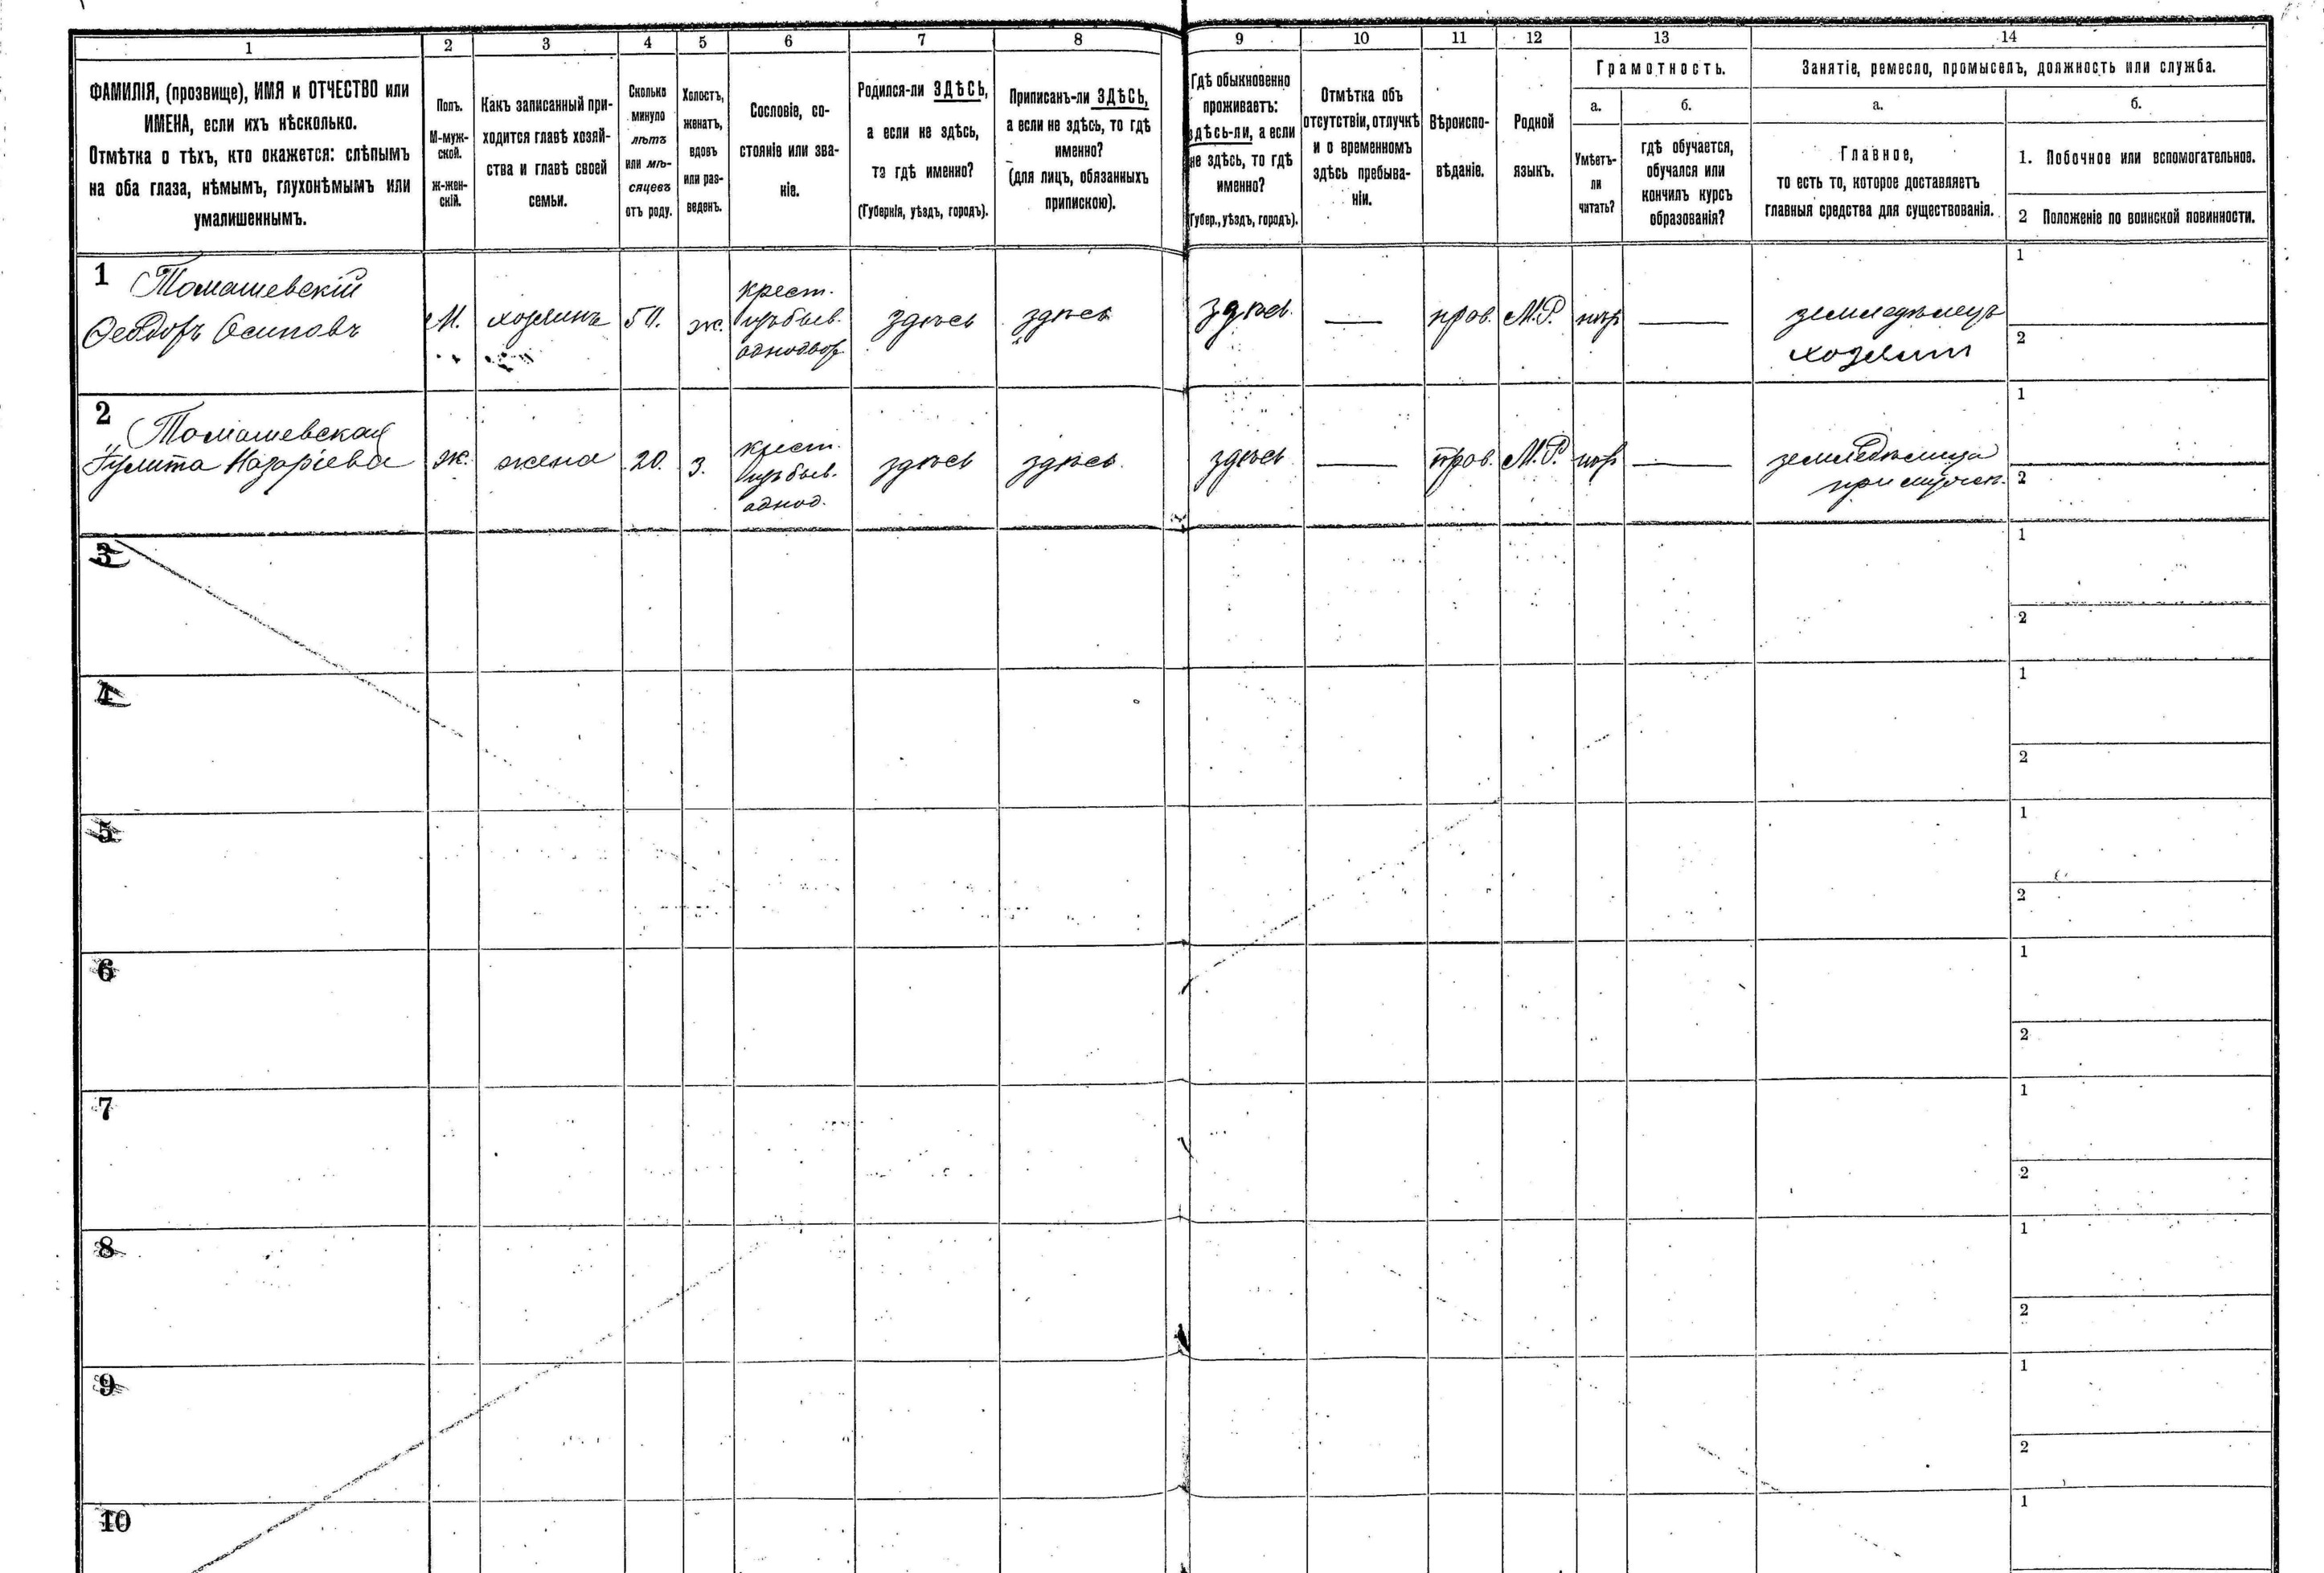 1 2 3 4 5 6 7 8 9 10 11 12 13 14
ФАМИЛІЯ, (прозвище), ИМЯ и ОТЧЕСТВО или
ИМЕНА, если ихъ нѣсколько.
Отмѣтка о тѣхъ, кто окажется: слѣпымъ
на оба глаза, нѣмымъ, глухонѣмымъ или
умалишеннымъ.
Полъ.
М-муж-
ской.
ж-жен-
скій.
Какъ записанный при-
ходится главѣ хозяй-
ства и главѣ своей
семьи.
Сколько
минуло
лѣтъ
или мѣ-
сяцевъ
отъ роду.
Холостъ,
женатъ,
вдовъ
или раз-
веденъ.
Сословіе, со-
стояніе или зва-
ніе.
Родился-ли ЗДѢСЬ,
а если не здѣсь,
то гдѣ именно?
(Губернія, уѣздъ, городъ).
Приписанъ-ли ЗДѢСЬ,
а если не здѣсь, то гдѣ
именно?
(для лицъ, обязанныхъ
припискою).
Гдѣ обыкновенно
проживаетъ:
здѣсь-ли, а если
не здѣсь, то гдѣ
именно?
(Губер., уѣздъ, городъ).
Отмѣтка объ
отсутствіи, отлучкѣ
и о временномъ
здѣсь пребыва-
ніи.
Вѣроиспо-
вѣданіе.
Родной
языкъ.
Грамотность.
а.
Умѣетъ-
ли
читать?
б.
гдѣ обучается,
обучался или
кончилъ курсъ
образованія?
Занятіе, ремесло, промыселъ, должность или служба.
а.
Главное,
то есть то, которое доставляетъ
главныя средства для существованія.
б.
1. Побочное или вспомогательное.
2 Положеніе по воинской повинности.
1 Томашевскій
Феодоръ Осиповъ
М.
хозяинъ
ж.
крест.
изъ быв.
однодвор
здѣсь
здѣсь
здѣсь.
—
прав.
М.Р.
—
земледѣлецъ
хозяин
1
2
2 Томашевская
Назаріева
ж.
жена
20.
з.
крест.
изъ быв.
однод.
здѣсь
здѣсь.
здѣсь
—
прав.
М.Р.
—
1
2
3
1
2
4
1
2
5
1
2
6
1
2
7
1
2
8
1
2
9
1
2
10
1